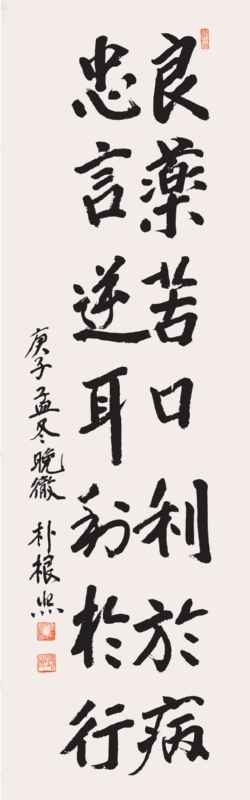 良藥苦口利於病
忠言逆耳利於行
庚子孟冬晚徹 朴根烋